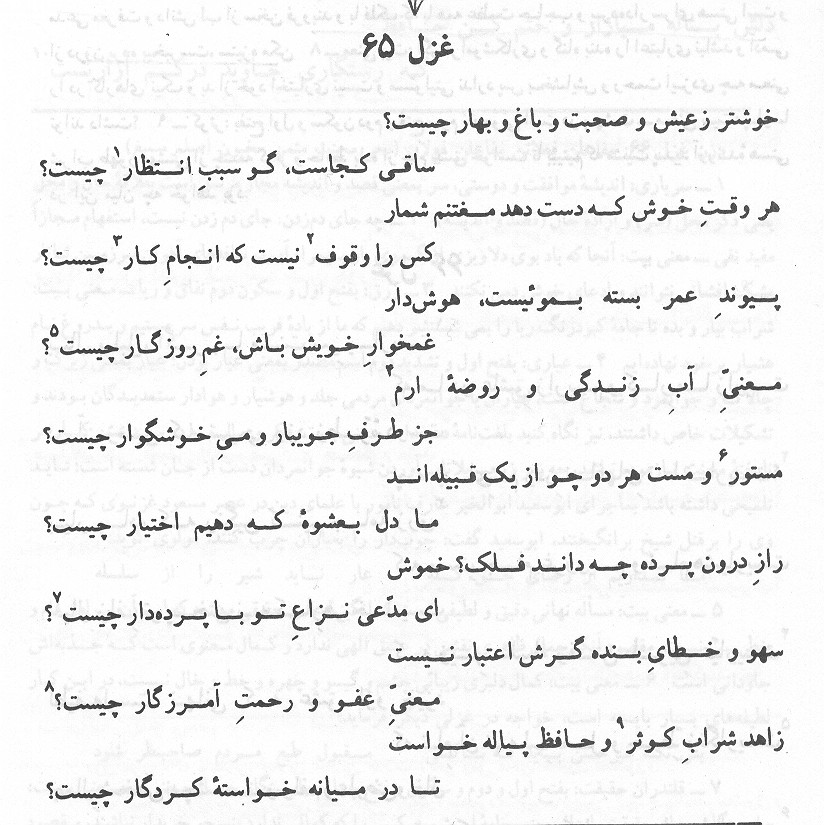 غزل ۶۵
خوشتر زعیش و صحبت و باغ و بهار چیست؟
ساقی کجاست، گو سببِ انتظار۱ چیست؟
هر وقتِ خوش که دست دهد مغتنم شمار
کس را وقوف۲ نیست که انجامِ کار۳ چیست؟
پیوندِ عمر بسته بموئیست، هوش‌دار
غمخوارِ خویش باش، غمِ روزگار چیست۵؟
معنیِّ آبِ زندگی و روضهٔ ارم۴
جز طرفِ جویبار و میِ خوشگوار چیست؟
مستور۶ و مست هر دو چو از یک قبیله‌اند
ما دل بعشوهٔ که دهیم اختیار چیست؟
رازِ درون پرده چه داند فلک؟ خموش
ای مدّعی نزاعِ تو با پرده‌دار چیست۷؟
سهو و خطایِ بنده گرش اعتبار نیست
معنیِ عفو و رحمتِ آمرزگار چیست؟۸
زاهد شرابِ کوثر۹ و حافظ پیاله خواست
تا در میانه خواستهٔ کردگار چیست؟